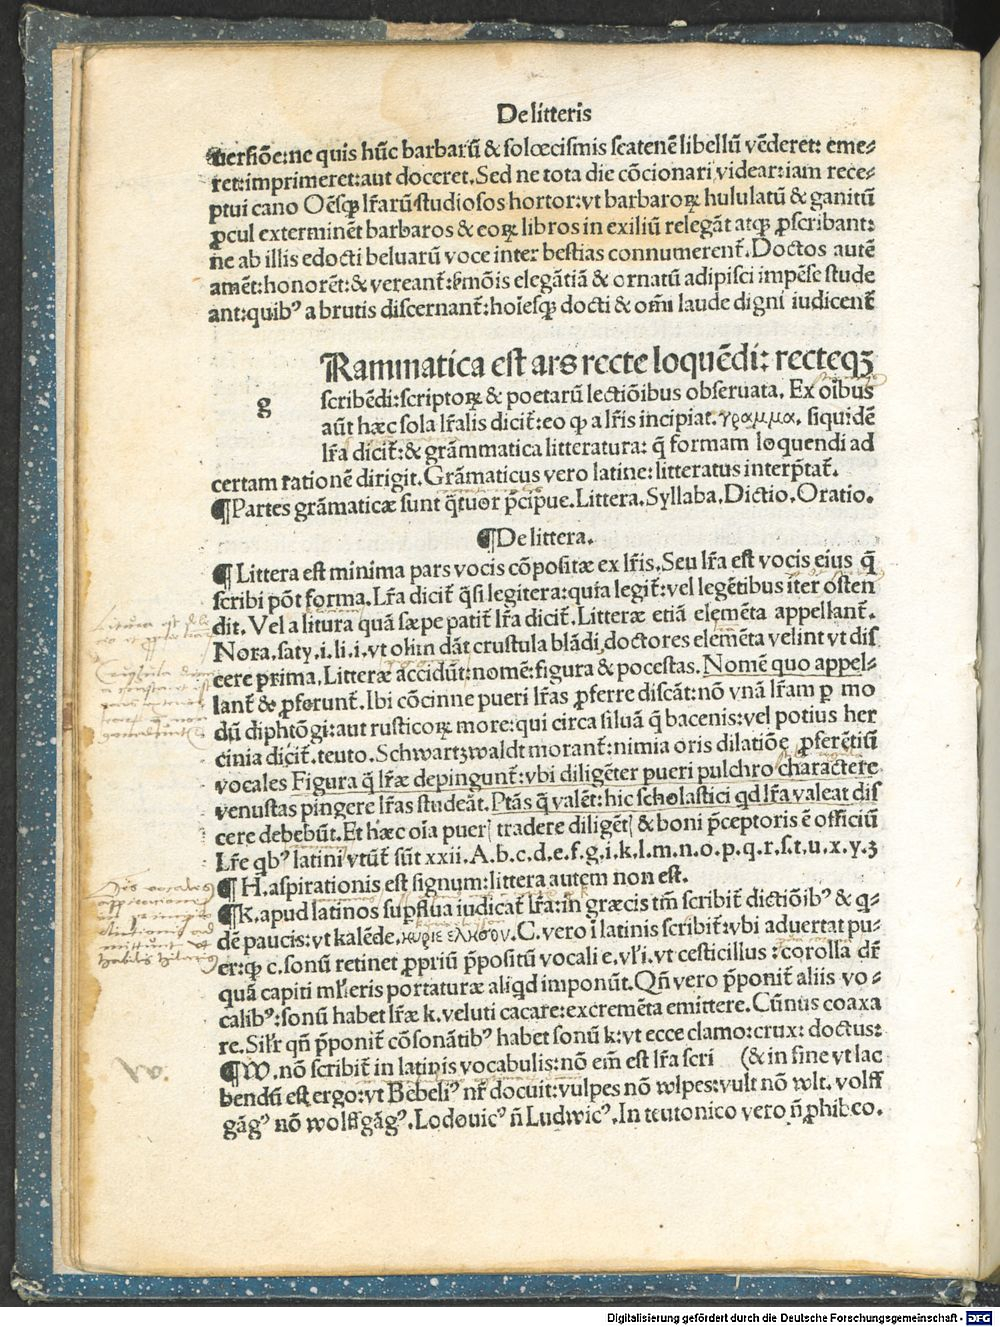 De litteris
uersiõe: ne quis hũc barbarũ & solœcismis scatenẽ libellũ vẽderet: eme-
ret: imprimeret: aut doceret. Sed ne tota die cõcionari videar: iam rece-
ptui cano Oẽsqꝫ lr̃arũ studiosos hortor: vt barbaroꝝ hululatũ & ganitũ
ꝓcul exterminẽt barbaros & eoꝝ libros in exiliũ relegãt atqꝫ ꝓscribant:
ne ab illis edocti beluarũ voce inter bestias connumerent̃. Doctos autẽ
amẽt: honorẽt: & vereant̃: sermõis elegãtiã & ornatũ adipisci impẽse stude
ant: quibꝰ a brutis discernant̃: hoĩesqꝫ docti & om̃i laude digni iudicent̃
g
Rammatica est ars recte loquẽdi: recteqꝫ
scribẽdi: scriptoꝝ & poetarũ lectiõibus obseruata. Ex oĩbus
aũt hæc sola lr̃alis dicit̃: eo ꝙ a lr̃is incipiat. γραμμα. siquidẽ
lr̃a dicit̃: & grãmmatica litteratura: q̃ formam loquendi ad
certam rationẽ dirigit. Grãmaticus vero latine: litteratus interp̃tat̃.
¶ Partes grãmaticæ sunt q̃tuor p̃cipue. Littera. Syllaba. Dictio. Oratio.
¶ De littera.
¶ Littera est minima pars vocis cõpositæ ex lr̃is. Seu lr̃a est vocis eius q̃
scribi põt forma. Lr̃a dicit̃ q̃si legitera: quia legit̃: vel legẽtibus iter osten
dit. Vel a litura quã sæpe patit̃ lr̃a dicit̃. Litteræ etiã elemẽta appellant̃.
Nora. saty. i. li. i. vt olim dãt crustula blãdi doctores elemẽta velint vt dis
cere prima. Litteræ accidũt: nomẽ: figura & potestas. Nomẽ quo appel-
lant̃ & ꝓferunt̃. Ibi cõcinne pueri lr̃as ꝓferre discãt: nõ vnã lr̃am ꝑ mo
dũ diphtõgi: aut rusticoꝝ more: qui circa siluã q̃ bacenis: vel potius her
cinia dicit̃. teuto. Schwartzwaldt morant̃: nimia oris dilatiõe ꝓferẽtiũ
vocales Figura q̃ lr̃æ depingunt̃: vbi diligẽter pueri pulchro charactere
venustas pingere lr̃as studeãt. Ptãs q̃ valẽt: hic scholastici qd lr̃a valeat dis
cere debebũt. Et hæc oĩa pueri tradere diligẽti & boni p̃ceptoris ẽ officiũ
Lr̃e qbꝰ latini vtũt̃ sũt xxii. A. b. c. d. e. f. g. i. k. l. m. n. o. p. q. r. s. t. u. x. y. z
¶ H. aspirationis est signum: littera autem non est.
¶ K. apud latinos supflua iudicat̃ lr̃a: in græcis tm̃ scribit̃ dictiõibꝰ & q-
dẽ paucis: vt kalẽde. κυριε ελησον. C. vero ĩ latinis scribit̃: vbi aduertat pu-
er: ꝙ c. sonũ retinet ꝓpriũ p̃positũ vocali e. vl' i. vt cesticillus: corolla dr̃
quã capiti ml'ieris portaturæ aliqd imponũt. Qñ vero p̃ponit̃ aliis vo-
calibꝰ: sonũ habet lr̃æ k. veluti cacare: excremẽta emittere. Cũnus coaxa
re. Sil'r qñ p̃ponit̃ cõsonãtibꝰ habet sonũ k: vt ecce clamo: crux: doctus:
¶ W. nõ scribit̃ in latinis vocabulis: nõ em̃ est lr̃a scri (& in fine vt lac
bendũ est ergo: vt Bebeliꝰ nr̃ docuit: vulpes nõ wlpes: vult nõ wlt. volff
gãgꝰ nõ wolffgãgꝰ. Lodouicꝰ ñ Ludwicꝰ. In teutonico vero ñ ꝓhibeo.
Digitalisierung gefördert durch die Deutsche Forschungsgemeinschaft - DFG